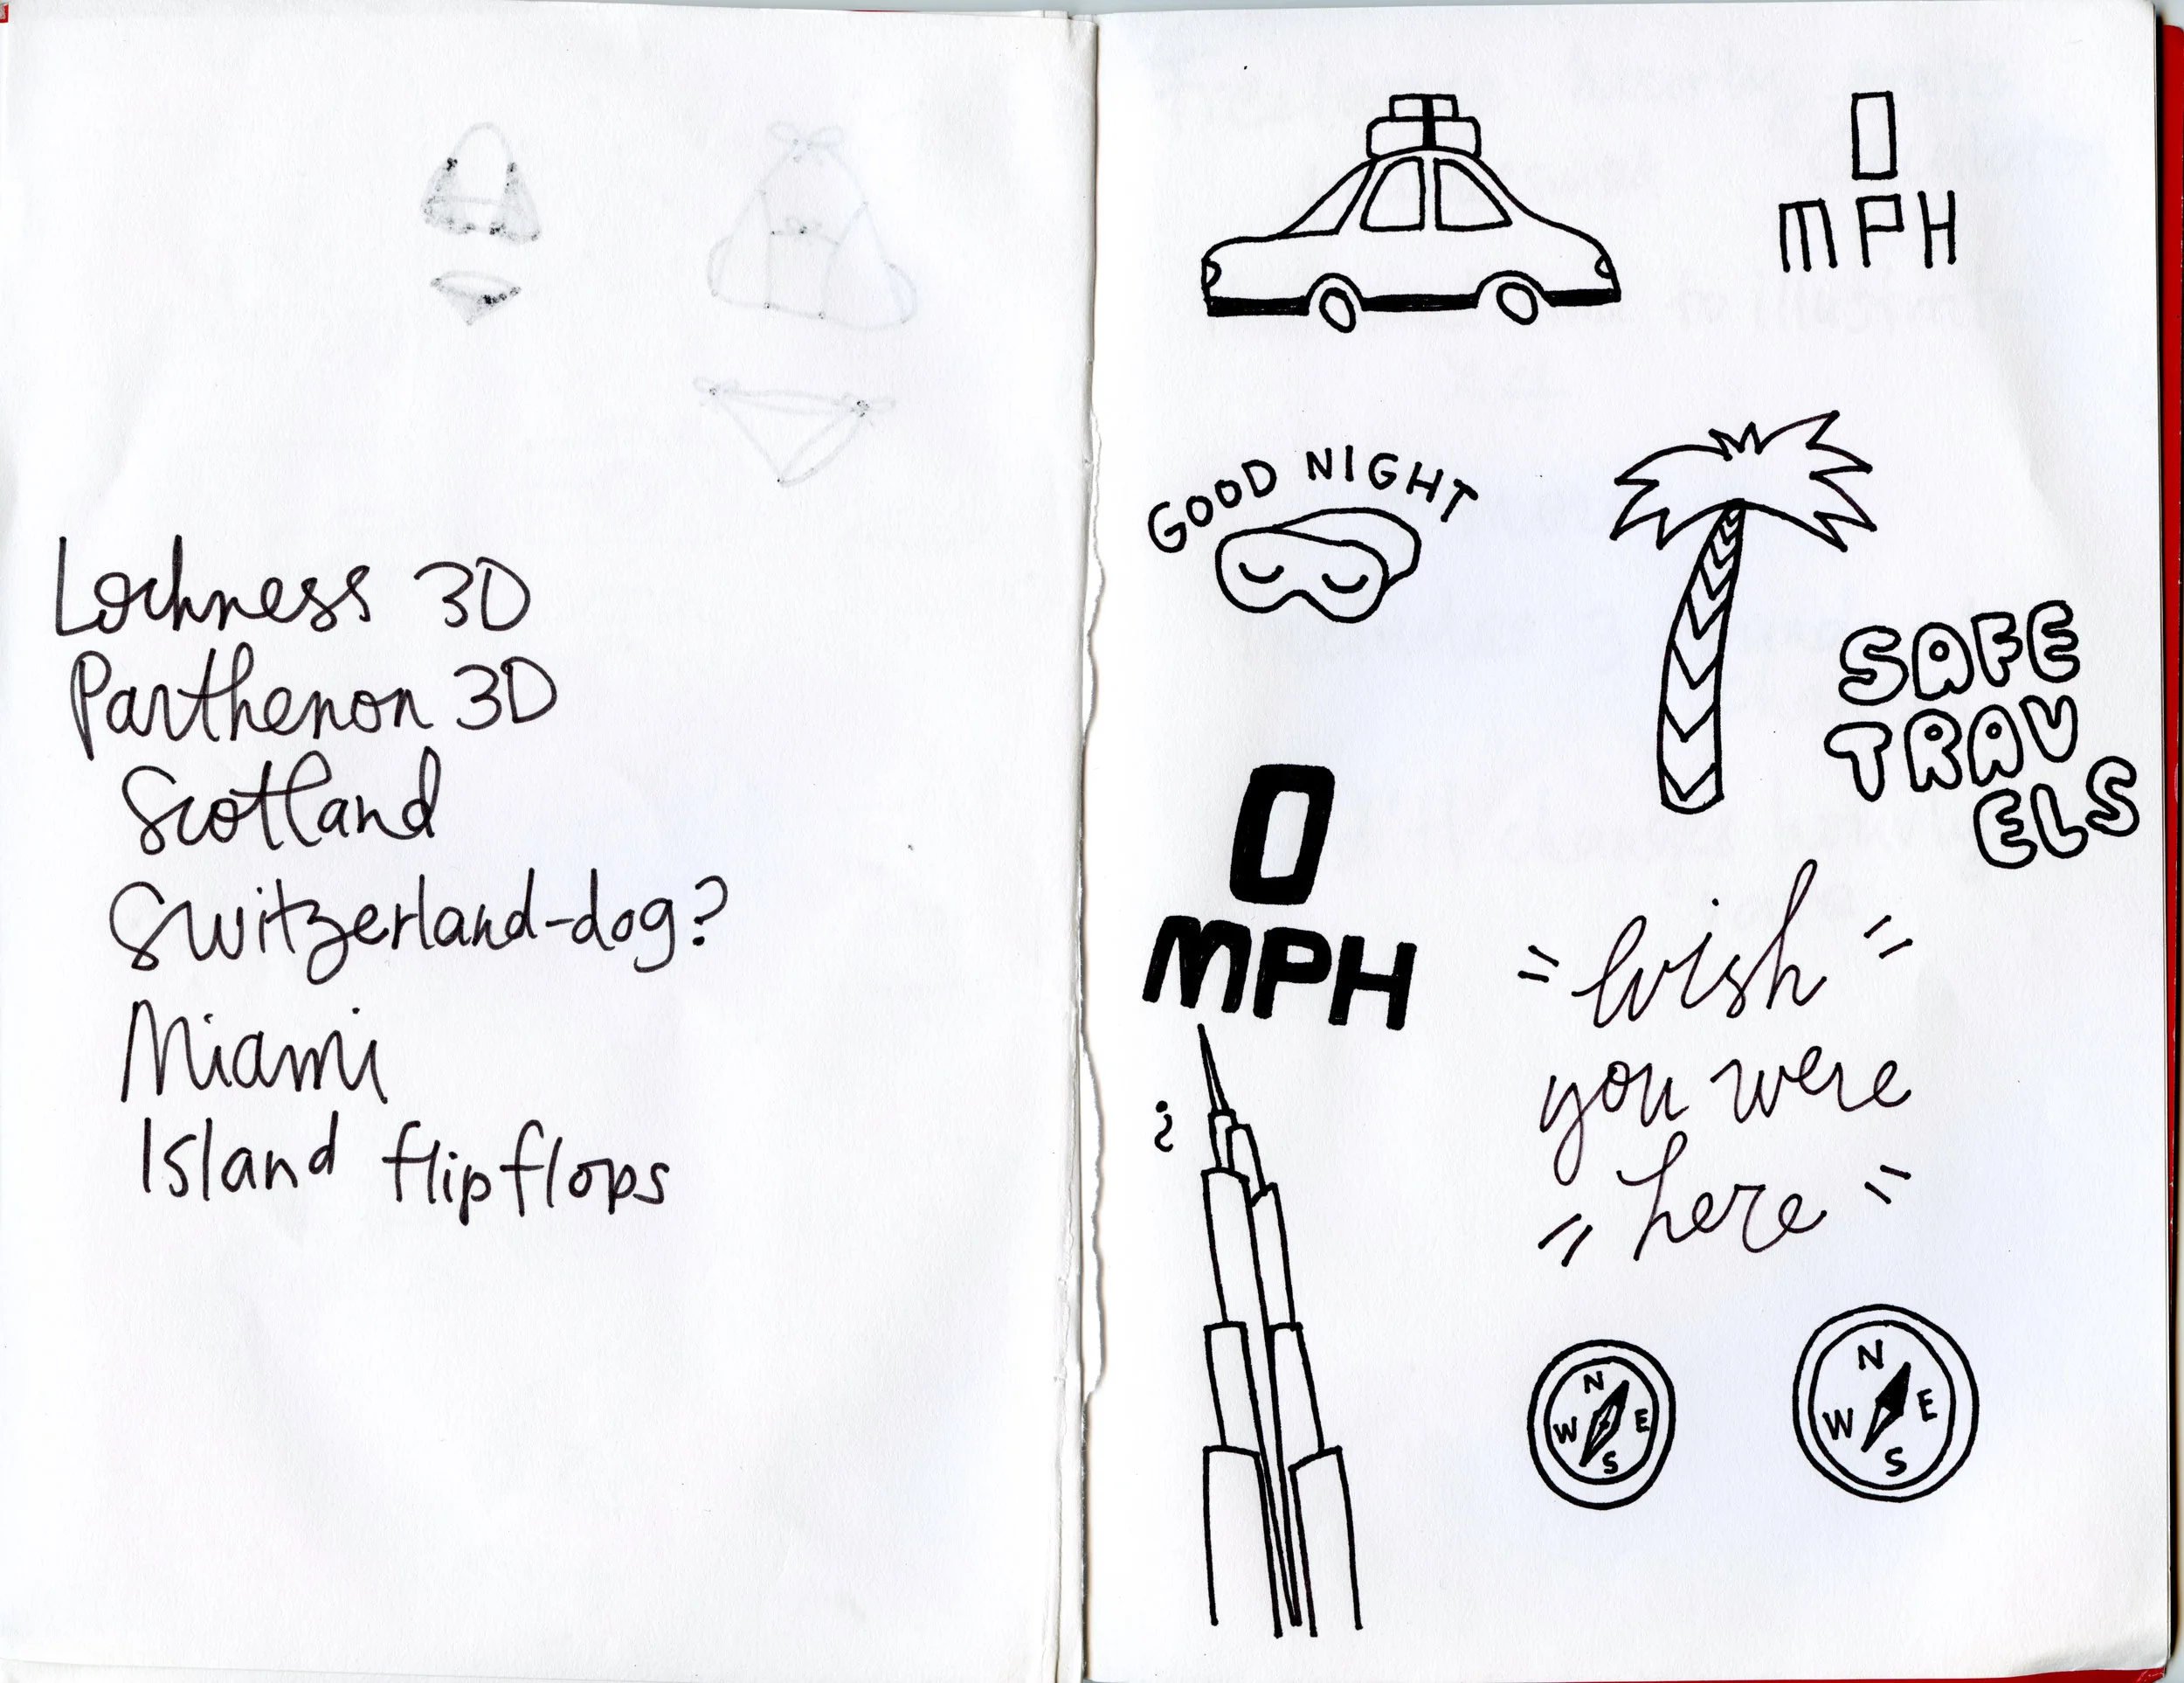 Lochness 3D
Parthenon 3D
Scotland
Switzerland-dog?
Miami
Island flipflops
0
MPH
GOOD NIGHT
SAFE
TRAV
ELS
0
MPH
Wish
you were
here
¿
N
W E
S
N
W E
S